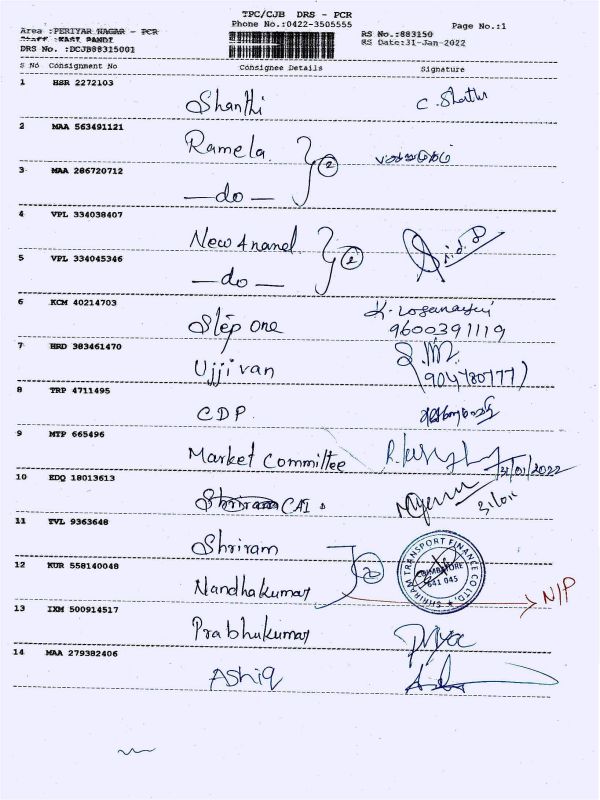 TPC/CJB DRS - PCR
Phone No.:0422-3505555
Page No.:1
Area :PERIYAR NAGAR - PCR
Staff :KASI PANDI
DRS No. :DCJB88315001
RS No.:883150
RS Date:31-Jan-2022
S No Consignment No Consignee Details Signature
1 HSR 2272103 Shanthi
2 MAA 563491121 Ramela 2
3 MAA 286720712 —do—
4 VPL 334038407 New Anand 2
5 VPL 334045346 —do—
6 KCM 40214703 Step one K. Loganayaki
9600391119
7 HRD 383461470 Ujjivan
8 TRP 4711495 CDP
9 MTP 665496 Market Committee 31/01/2022
10 EDQ 18013613 CAI
11 TVL 9363648 Shriram 2
SHRIRAM TRANSPORT FINANCE CO LTD.
COIMBATORE
641 045
12 KUR 558140048 Nandhakumar N/P
13 IXM 500914517 Prabhukumar
14 MAA 279382406 Ashiq